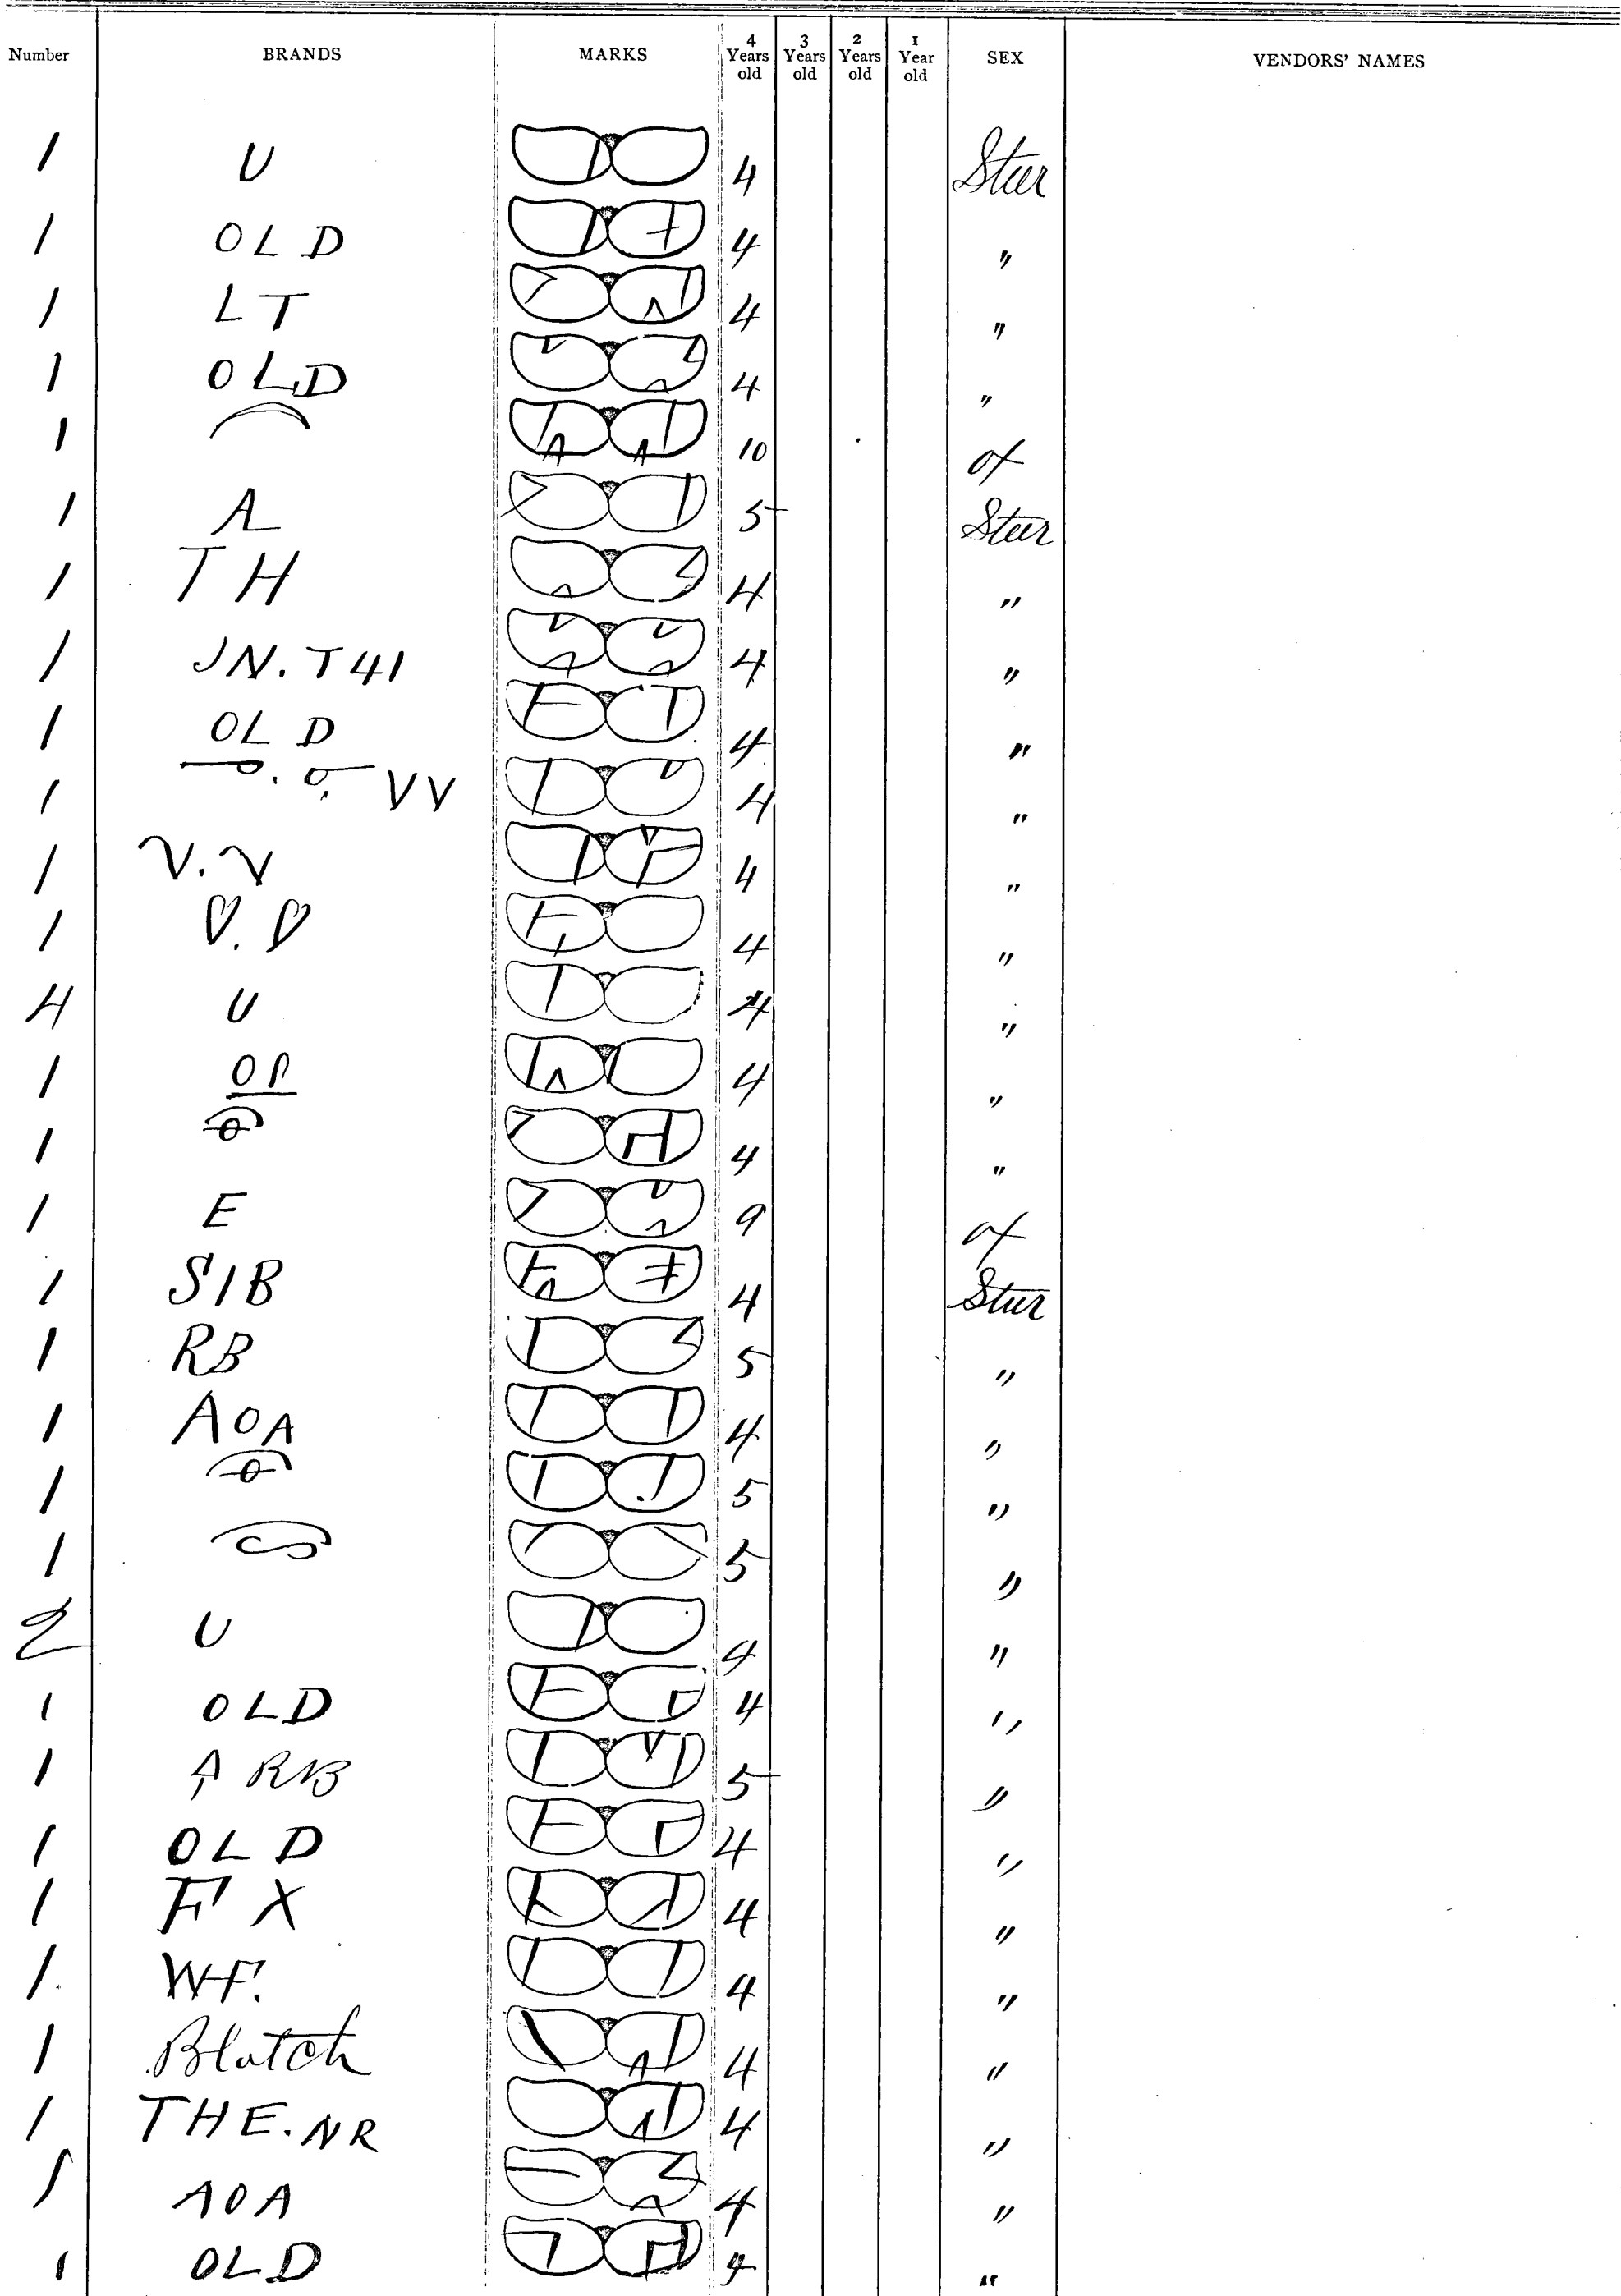 Number BRANDS MARKS 4 Years old 3 Years old 2 Years old 1 Year old SEX VENDORS' NAMES
1 U 4 Steer
1 OLD 4 "
1 LT 4 "
1 OLD 4 "
1 10 Ox
1 A 5 Steer
1 TH 4 "
1 JN. T41 4 "
1 OLD 4 "
1 VV 4 "
1 V.V 4 "
1 4 "
4 U 4 "
1 4 "
1 4 "
1 E 9 Ox
1 SIB 4 Steer
1 RB 5 "
1 AOA 4 "
1 5 "
1 5 "
2 U 4 "
1 OLD 4 "
1 5 "
1 OLD 4 "
1 F X 4 "
1 WF. 4 "
1 Blotch 4 "
1 THE.NR 4 "
1 AOA 4 "
1 OLD "